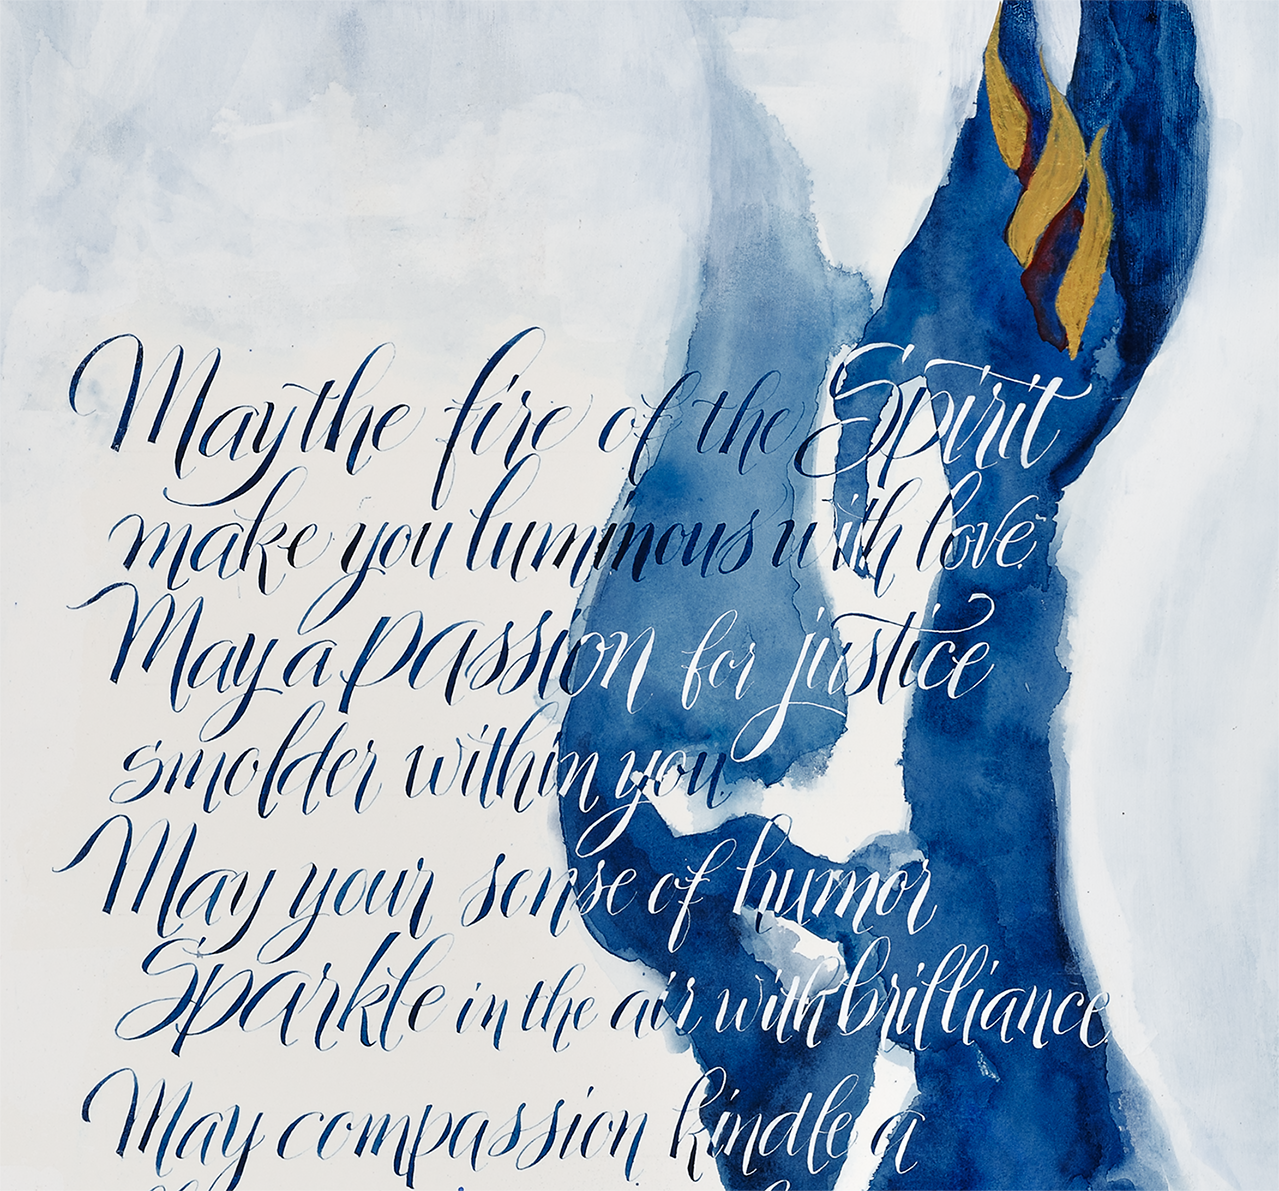 May the fire of the Spirit
make you luminous with love.
May a passion for justice
smolder within you.
May your sense of humor
Sparkle in the air with brilliance.
May compassion kindle a